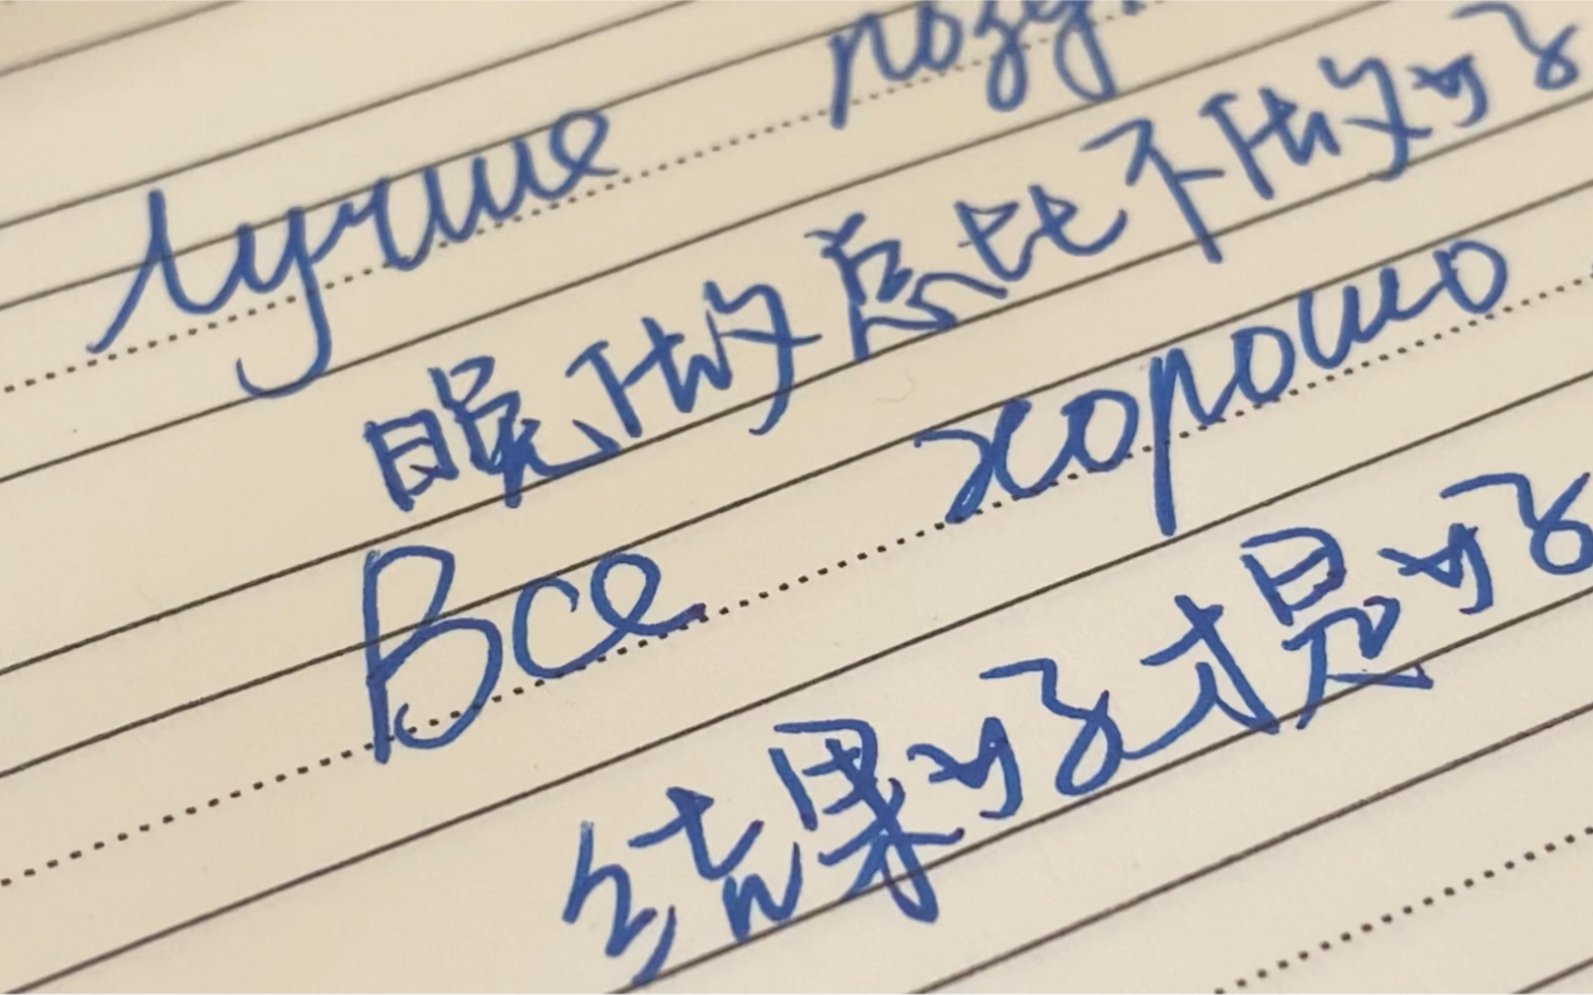 Лучше позд
晚做总比不做好
Все хорошо
结果好才是好